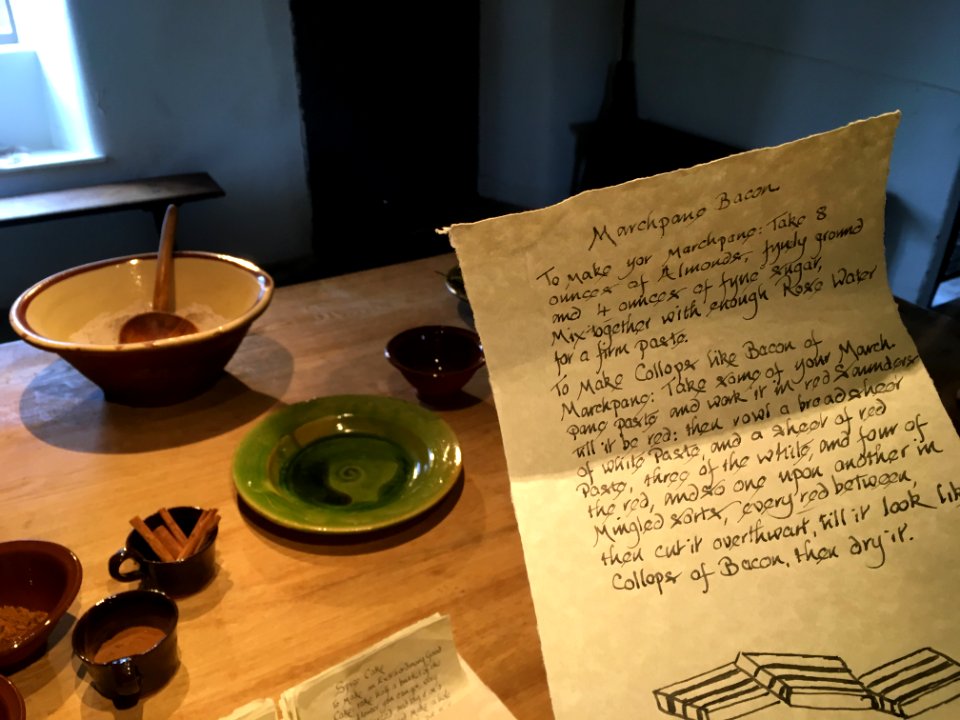 Marchpane Bacon
To Make yor Marchpane: Take 8
ounces of Almonds, fynely ground
and 4 ounces of fyne sugar,
Mix together with enough Rose Water
for a firm paste.
To Make Collops like Bacon of
Marchpane: Take some of your March-
pane paste and work it in red saunders
till it be red: then rowl a broad sheet
of white Paste, and a sheet of red
Paste, three of the white, and four of
the red, and so one upon another in
Mingled sorts, every red between,
then cut it overthwart, till it look like
Collops of Bacon, then dry it.
Cake
To Make an Extraordinary Good
Cake